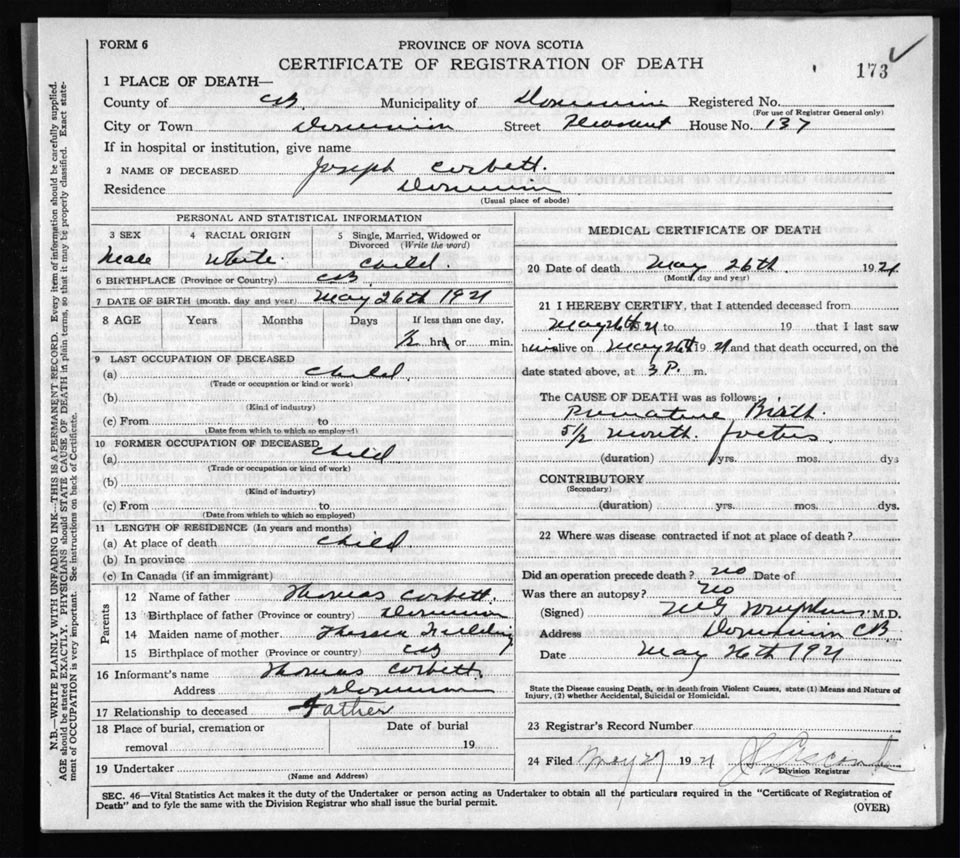 FORM 6
PROVINCE OF NOVA SCOTIA
CERTIFICATE OF REGISTRATION OF DEATH
173
1 PLACE OF DEATH—
County of CB. Municipality of Dominion Registered No.
(For use of Registrar General only)
City or Town Dominion Street Pleasant House No. 137
If in hospital or institution, give name
2 NAME OF DECEASED Joseph Corbett.
Residence Dominion
(Usual place of abode)
PERSONAL AND STATISTICAL INFORMATION
3 SEX 4 RACIAL ORIGIN 5 Single, Married, Widowed or Divorced (Write the word)
Male White. Child.
6 BIRTHPLACE (Province or Country) CB.
7 DATE OF BIRTH (month, day and year) May 26th 1921
8 AGE Years Months Days If less than one day,
1/2 hrs or min.
9 LAST OCCUPATION OF DECEASED
(a) Child.
(Trade or occupation or kind of work)
(b)
(Kind of industry)
(c) From to
(Date from which to which so employed)
10 FORMER OCCUPATION OF DECEASED
(a) Child.
(Trade or occupation or kind of work)
(b)
(Kind of industry)
(c) From to
(Date from which to which so employed)
11 LENGTH OF RESIDENCE (In years and months)
(a) At place of death Child.
(b) In province
(c) In Canada (if an immigrant)
Parents
12 Name of father Thomas Corbett.
13 Birthplace of father (Province or country) Dominion
14 Maiden name of mother
15 Birthplace of mother (Province or country) CB
16 Informant's name Thomas Corbett.
Address Dominion
17 Relationship to deceased Father
18 Place of burial, cremation or removal Date of burial
19
19 Undertaker
(Name and Address)
MEDICAL CERTIFICATE OF DEATH
20 Date of death May 26th. 1921
(Month, day and year)
21 I HEREBY CERTIFY, that I attended deceased from
May 26th 21 to 19 that I last saw
him alive on May 26th 1921 and that death occurred, on the
date stated above, at 3 P. m.
The CAUSE OF DEATH was as follows:
Premature Birth.
5 1/2 month. foetus.
(duration) yrs. mos. dys
CONTRIBUTORY
(Secondary)
(duration) yrs. mos. dys.
22 Where was disease contracted if not at place of death?
Did an operation precede death? no Date of
Was there an autopsy? no
(Signed) M.D.
Address Dominion CB.
Date May 26th 1921
State the Disease causing Death, or in death from Violent Causes, state (1) Means and Nature of Injury, (2) whether Accidental, Suicidal or Homicidal.
23 Registrar's Record Number
24 Filed May 27 1921
Division Registrar
SEC. 46—Vital Statistics Act makes it the duty of the Undertaker or person acting as Undertaker to obtain all the particulars required in the "Certificate of Registration of
Death" and to fyle the same with the Division Registrar who shall issue the burial permit.
(OVER)
N.B.—WRITE PLAINLY WITH UNFADING INK—THIS IS A PERMANENT RECORD. Every item of information should be carefully supplied.
AGE should be stated EXACTLY. PHYSICIANS should STATE CAUSE OF DEATH in plain terms, so that it may be properly classified. Exact state-
ment of OCCUPATION is very important. See instructions on back of Certificate.